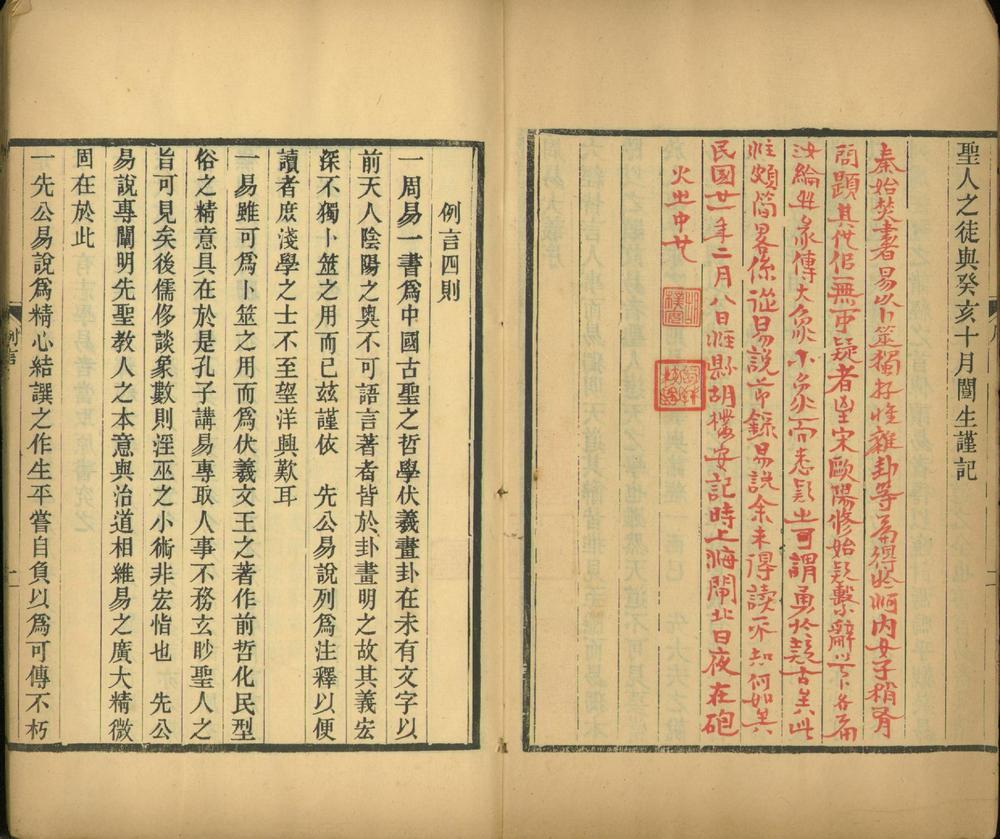 聖人之徒與癸亥十月闓生謹記
秦始焚書易以卜筮獨存惟雜卦等篇得於河內女子稍有
問題其他但無可疑者也宋歐陽修始疑繫辭以下各篇
汝綸與彖傳大象小象而悉疑之可謂勇於疑古矣此
注頗簡畧係從易說節錄易說余未得讀不知何如矣
民國廿一年二月八日涇縣胡樸安記時上海閘北日夜在砲
火之中廿
例言四則
一周易一書爲中國古聖之哲學伏羲畫卦在未有文字以
前天人陰陽之奧不可語言著者皆於卦畫明之故其義宏
深不獨卜筮之用而已玆謹依　先公易說列爲注釋以便
讀者庶淺學之士不至望洋興歎耳
一易雖可爲卜筮之用而爲伏羲文王之著作前哲化民型
俗之精意具在於是孔子講易專取人事不務玄眇聖人之
旨可見矣後儒侈談象數則淫巫之小術非宏恉也　先公
易說專闡明先聖教人之本意與治道相維易之廣大精微
固在於此
一先公易說爲精心結譔之作生平嘗自負以爲可傳不朽
例言
二